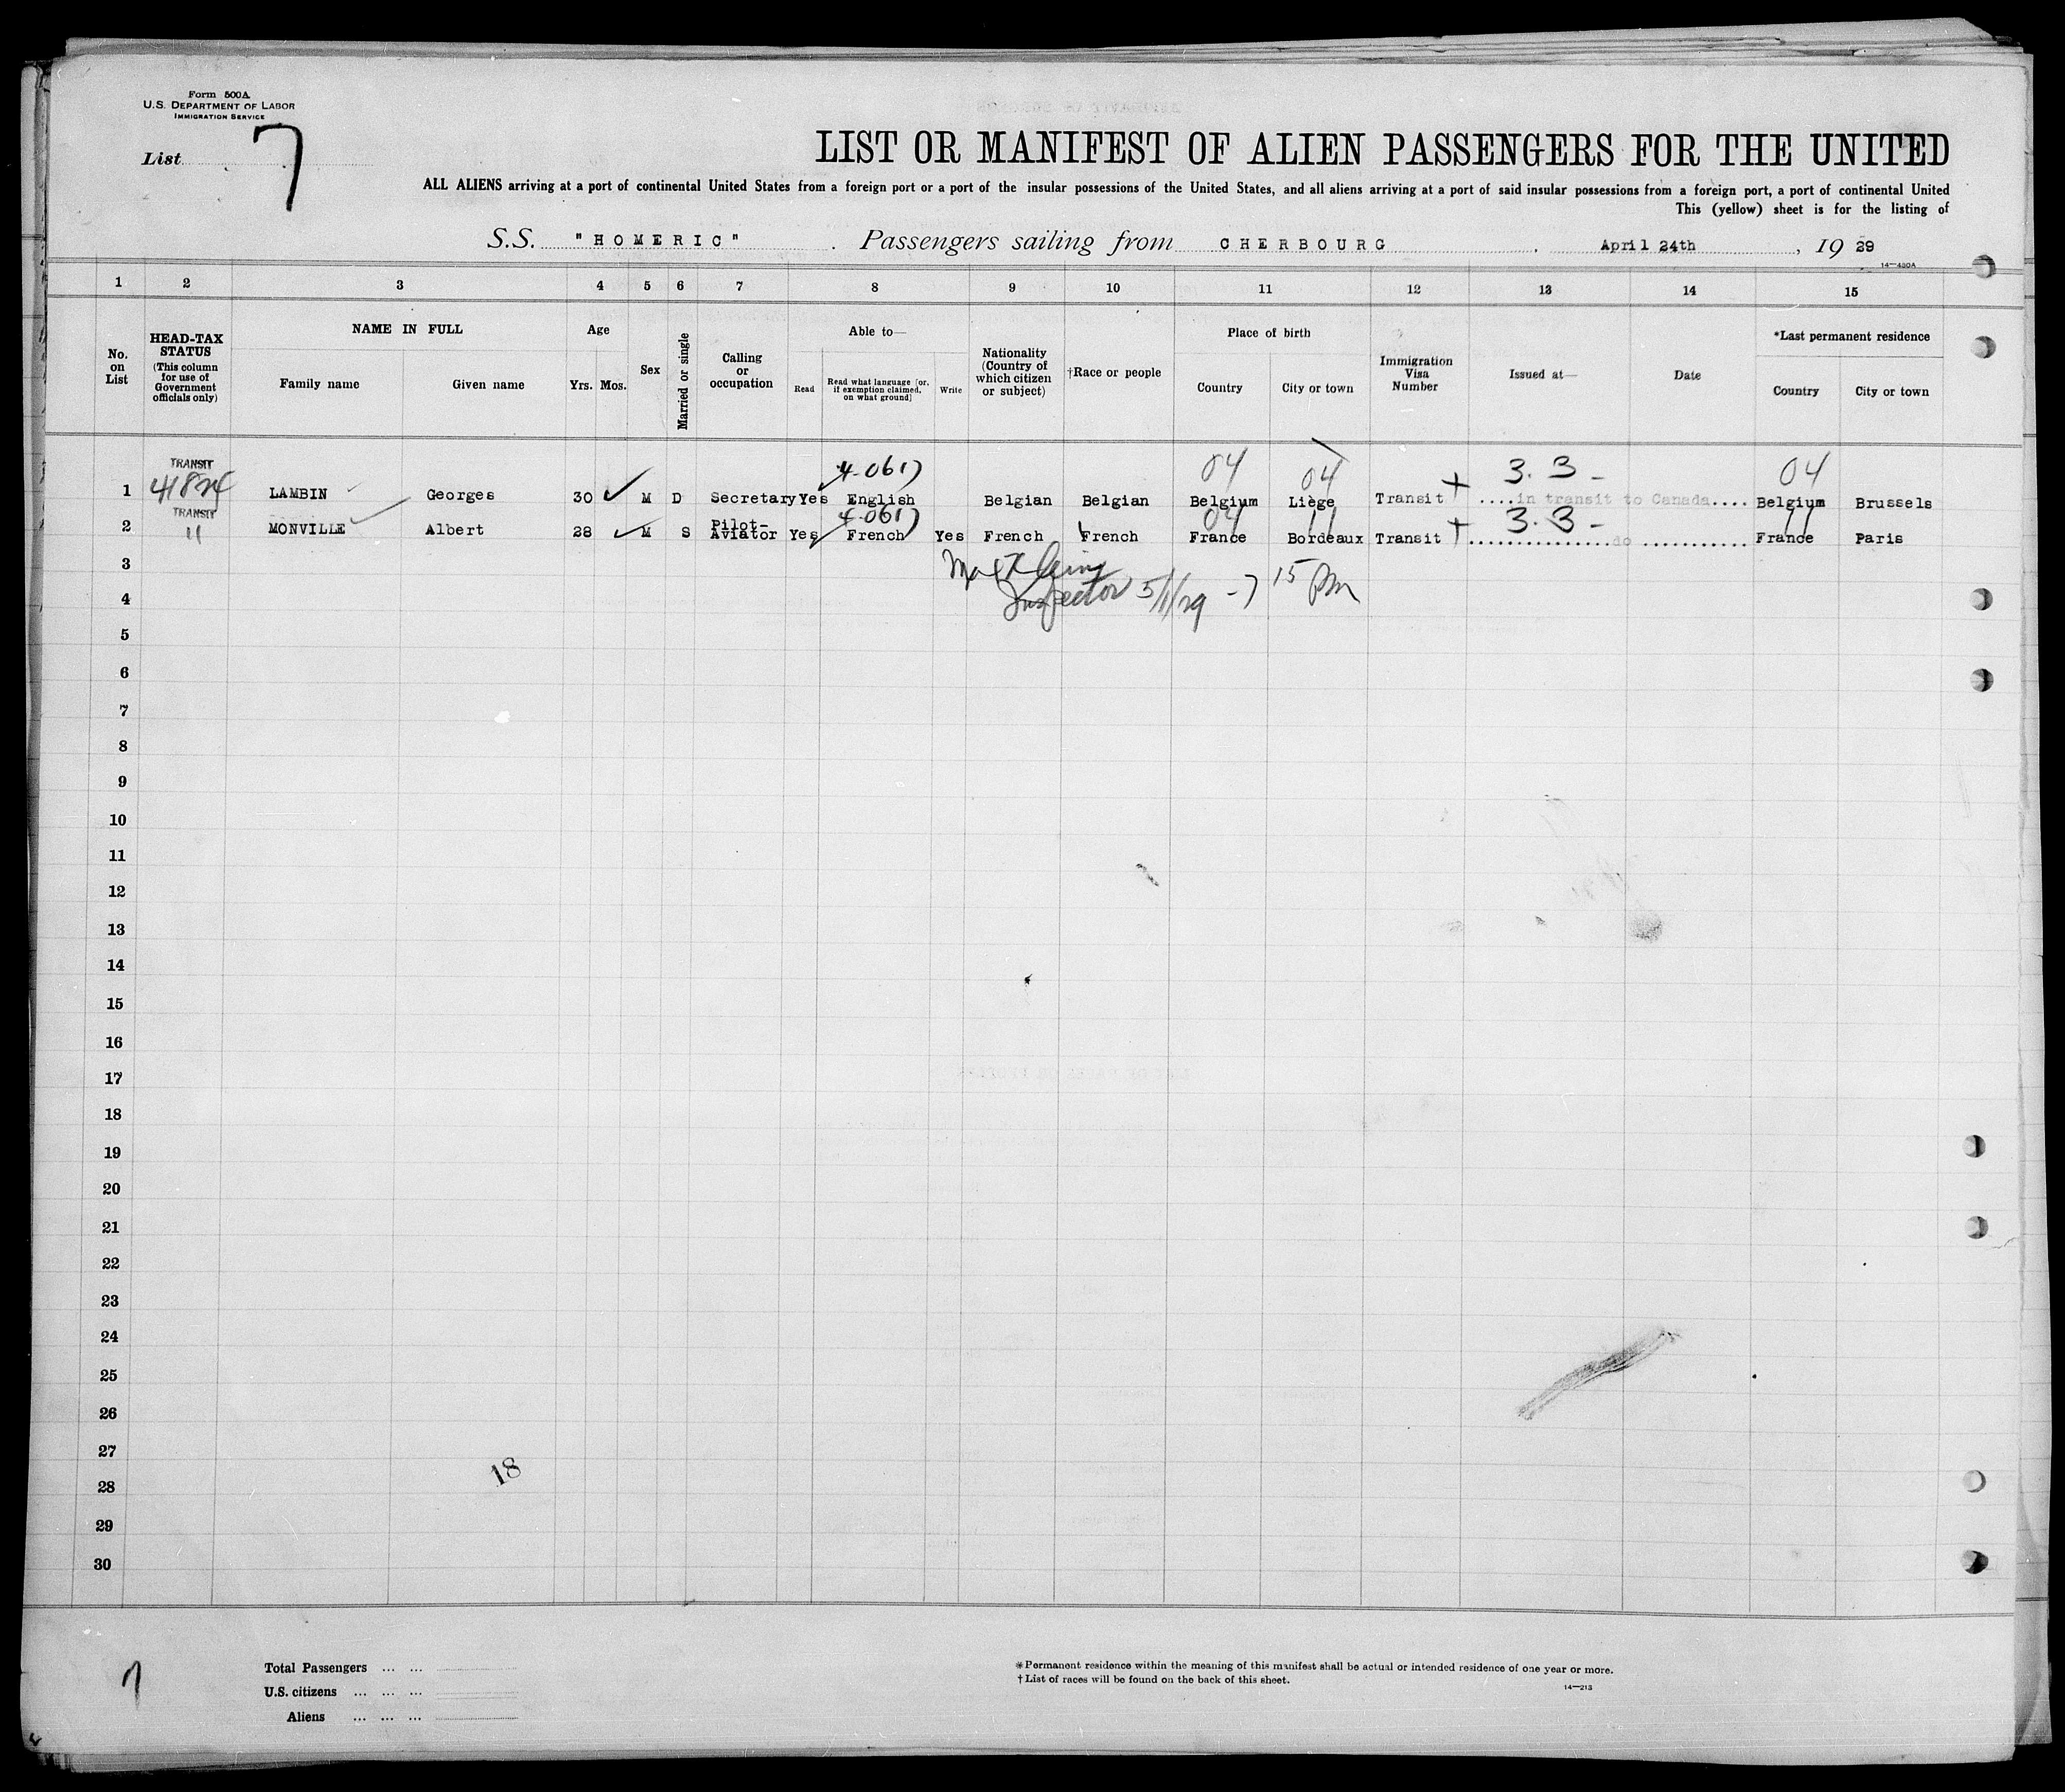 Form 500A
U.S. DEPARTMENT OF LABOR
IMMIGRATION SERVICE
List 7
LIST OR MANIFEST OF ALIEN PASSENGERS FOR THE UNITED
ALL ALIENS arriving at a port of continental United States from a foreign port or a port of the insular possessions of the United States, and all aliens arriving at a port of said insular possessions from a foreign port, a port of continental United
This (yellow) sheet is for the listing of
S.S. "HOMERIC" . Passengers sailing from CHERBOURG , April 24th , 19 29
14—430A
1 2 3 4 5 6 7 8 9 10 11 12 13 14 15
No. on List
HEAD-TAX STATUS (This column for use of Government officials only)
NAME IN FULL
Family name Given name
Age
Yrs. Mos.
Sex
Married or single
Calling or occupation
Able to—
Read
Read what language [or, if exemption claimed, on what ground]
Write
Nationality (Country of which citizen or subject)
†Race or people
Place of birth
Country City or town
Immigration Visa Number
Issued at—
Date
*Last permanent residence
Country City or town
TRANSIT 4-0617 04 04 3.3- 04
1 LAMBIN Georges 30 M D Secretary Yes English Belgian Belgian Belgium Liège Transit + ....in transit to Canada.... Belgium Brussels
TRANSIT 4-0617 04 11 3.3- 11
2 11 MONVILLE Albert 28 M S Pilot-Aviator Yes French Yes French French France Bordeaux Transit + ................do ............ France Paris
3
Inspector 5/1/29 - 7 15 Pm
4
5
6
7
8
9
10
11
12
13
14
15
16
17
18
19
20
21
22
23
24
25
26
27
18
28
29
30
7
Total Passengers ... ...
U.S. citizens ... ... ...
Aliens ... ... ...
*Permanent residence within the meaning of this manifest shall be actual or intended residence of one year or more.
†List of races will be found on the back of this sheet.
14—213